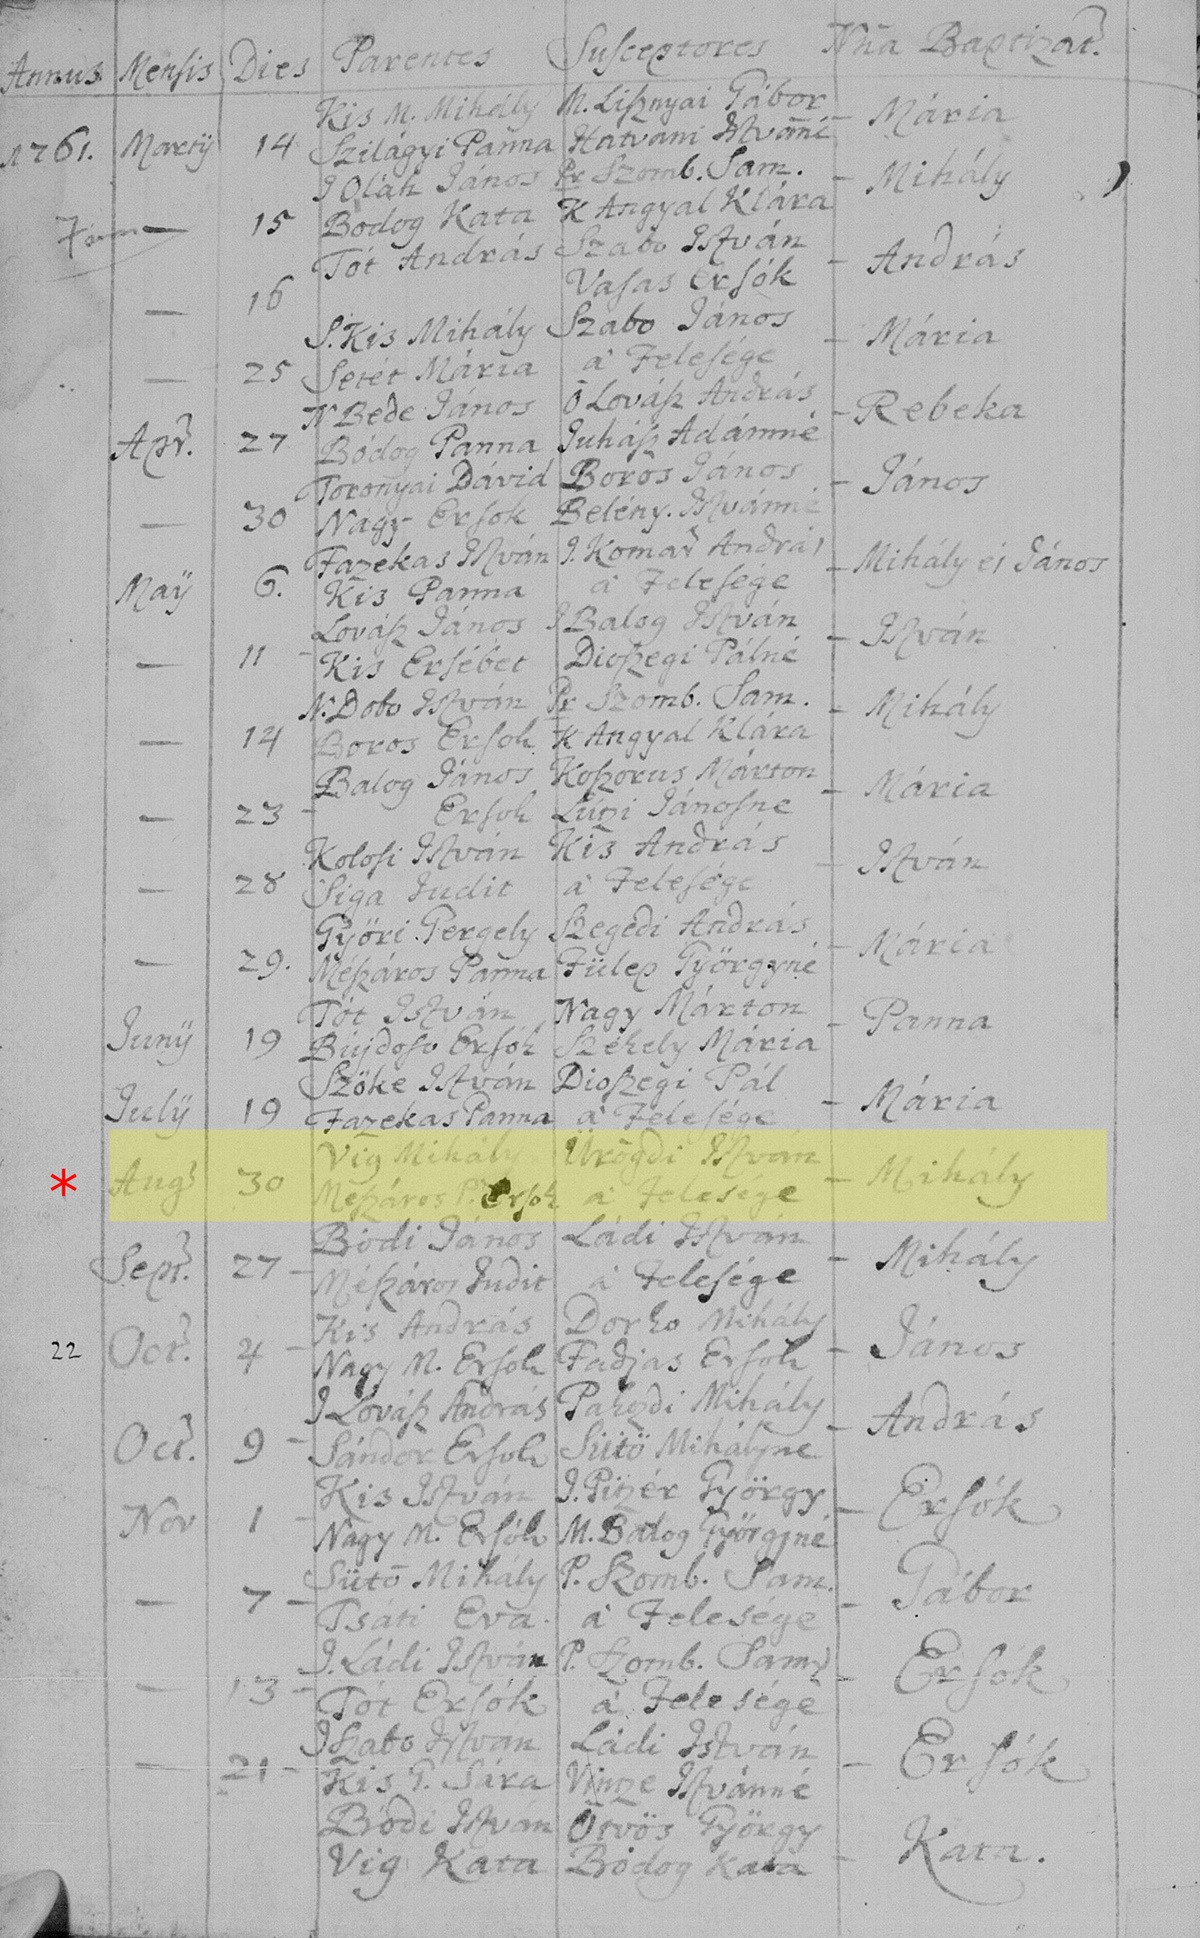 Annus. Mensis Dies Parentes Susceptores Nña Baptizat.
Kis M. Mihály M. Lisznyai Gábor
1761. Martij 14 Szilágyi Panna Hatvani Istváné – Mária
I Oláh János Pr Szomb. Sam.
15 Bodog Kata K Angyal Klára – Mihály
Tót András Szabo István
— 16 Vasas Ersók – András
S. Kis Mihály Szabo János
— 25 Setét Mária a' Felesége – Mária
N Bede János Ó Lovász András
Apr. 27 Bódog Panna Juhász Adámné – Rebeka
Toronyai Dávid Boros János
— 30 Nagy Ersok Belény. Istvánné – János
Fazekas István I. Komar András
Maÿ 6. Kis Panna a' Felesége – Mihály és János
Lovász János I Balog István
— 11 – Kis Ersébet Dioszegi Pálné – István
N. Dobo István Pr Szomb. Sam.
— 14 Boros Ersok K Angyal Klára – Mihály
Balog János Koszorus Márton
— 23 – Ersok Lútzi Jánosne – Mária
Kolosi István Kis András
— 28 Siga Judit a' Felesége – István
Győri Gergely Szegedi András
— 29. Mészáros Panna Fülep Györgyné – Mária
Tót István Nagy Márton
Junÿ 19 Bujdoso Ersók Székely Mária – Panna
Szőke István Dioszegi Pál
Julÿ 19 Fazekas Panna a' Felesége – Mária
Vig Mihály Ürögdi István
* Aug 30 Mészáros P. Ersok a' Felesege – Mihály
Bódi János Ládi István
Sept. 27 – Mészáros Judit a' Felesége – Mihály
Kis András Dorko Mihály
22 Oct. 4 – Nagy M. Ersok Fadjas Ersok – János
I Lovász András Pakozdi Mihály
Oct. 9 – Sándor Ersok Sütö Mihályne – András
Kis István I. Pitzér György
Nov 1 – Nagy M. Ersók M. Balog Györgyné – Ersók
Sütö Mihály P. Szomb. Sam.
— 7 – Tsáti Eva. a' Felesége – Gábor
I. Ládi István P. Szomb. Sam
— 13 – Tót Ersók a' Felesége – Ersók
I Szabo István Ládi István
— 21 – Kis G. Sára Vintze Istvánné – Ersók
Bódi István Ötvös György
Vig Kata Bódog Kata – Kata.